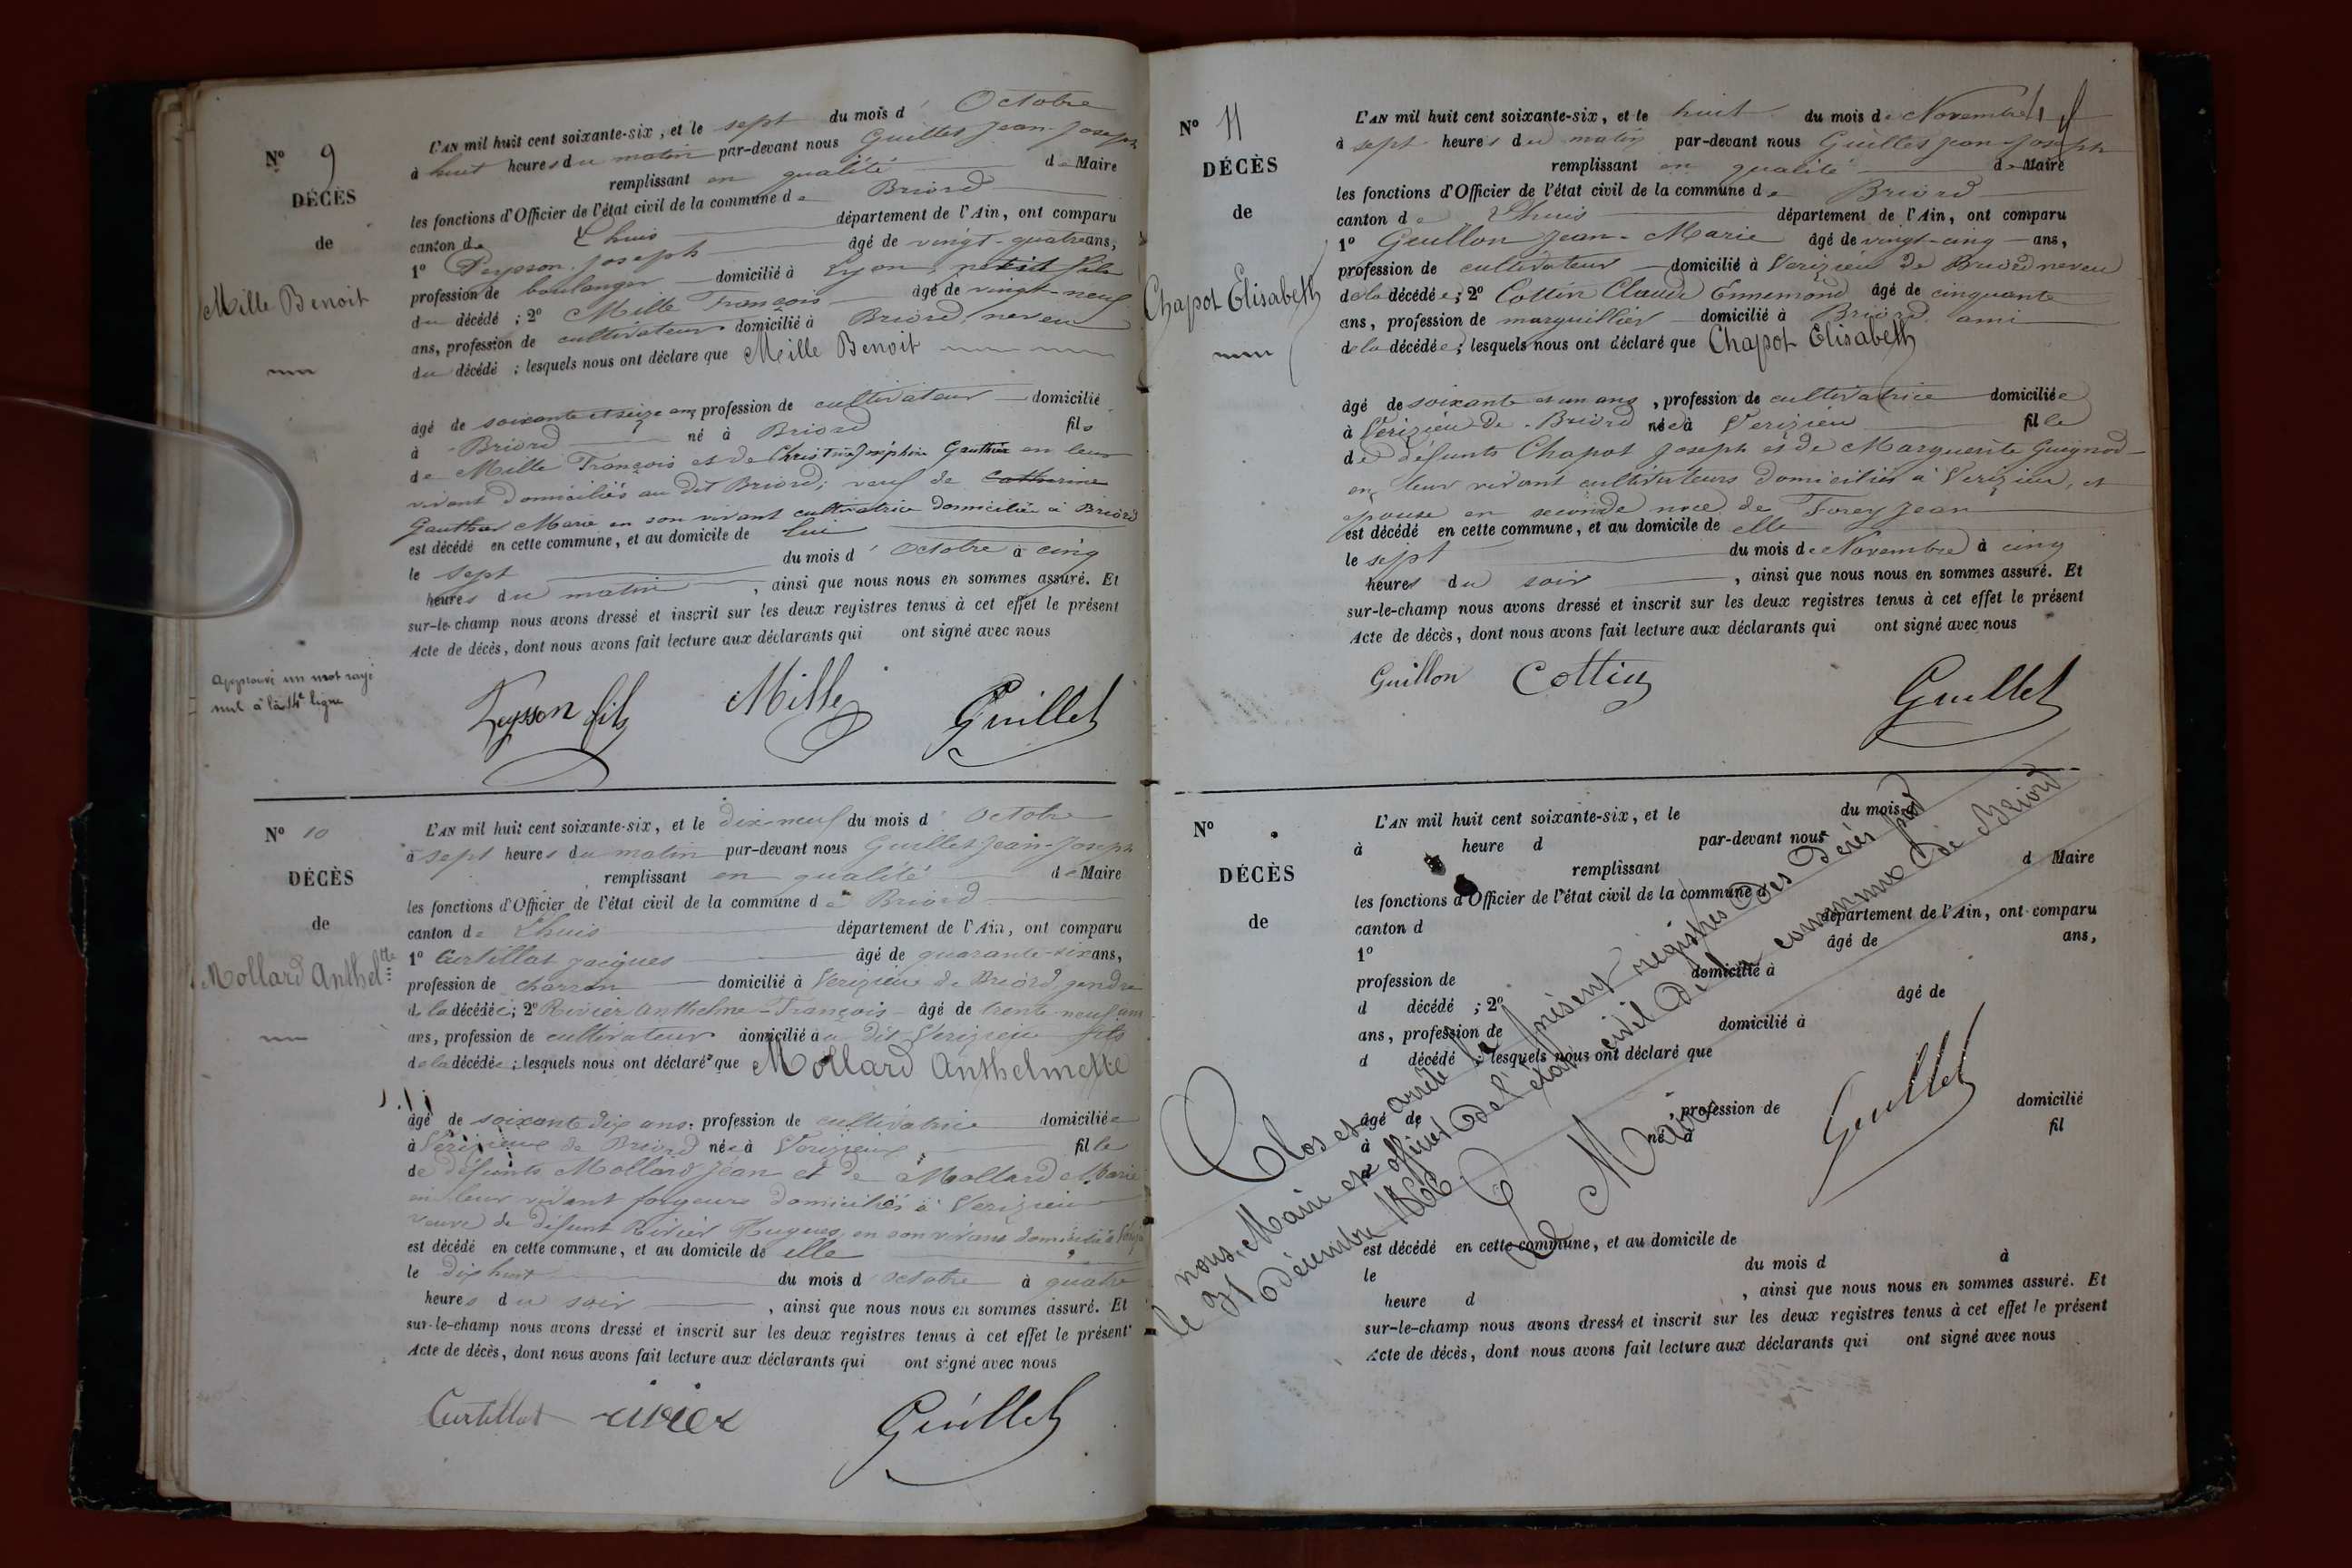 N° 9
DÉCÈS
de
Mille Benoit
L'AN mil huit cent soixante-six, et le sept du mois d' Octobre
à huit heures du matin par-devant nous Guillet Jean-Joseph
remplissant en qualité de Maire
les fonctions d'Officier de l'état civil de la commune de Briord
canton de Lhuis département de l'Ain, ont comparu
1° Peysson Joseph âgé de vingt-quatre ans,
profession de boulanger domicilié à Lyon, petit fils
du décédé ; 2° Mille François âgé de vingt-neuf
ans, profession de cultivateur domicilié à Briord, neveu
du décédé ; lesquels nous ont déclaré que Mille Benoit
âgé de soixante et seize ans, profession de cultivateur domicilié
à Briord né à Briord fils
de Mille François et de Christine Joséphine Gauthier en leur
vivant domiciliés au dit Briord; veuf de Catherine
Gauthier Marie en son vivant cultivatrice domiciliée à Briord
est décédé en cette commune, et au domicile de lui
le sept du mois d' Octobre à cinq
heures du matin, ainsi que nous nous en sommes assuré. Et
sur-le-champ nous avons dressé et inscrit sur les deux registres tenus à cet effet le présent
Acte de décès, dont nous avons fait lecture aux déclarants qui ont signé avec nous
Approuvé un mot rayé
nul à la 14e ligne
Peysson fils Mille Guillet
N° 10
DÉCÈS
de
Mollard Anthel.tte
L'AN mil huit cent soixante-six, et le dix-neuf du mois d' Octobre
à sept heures du matin par-devant nous Guillet Jean-Joseph
remplissant en qualité de Maire
les fonctions d'Officier de l'état civil de la commune de Briord
canton de Lhuis département de l'Ain, ont comparu
1° Curtillat Jacques âgé de quarante-six ans,
profession de charron domicilié à Verizieu de Briord gendre
de la décédée ; 2° Rivier Anthelme-François âgé de trente-neuf ans
ans, profession de cultivateur domicilié au dit Verizieu fils
de la décédée ; lesquels nous ont déclaré que Mollard Anthelmette
âgé de soixante dix ans, profession de cultivatrice domiciliée
à Verizieux de Briord née à Verizieux fille
de défunts Mollard Jean et de Mollard Marie
en leur vivant forgeurs domiciliés à Verizieu
veuve de défunt Rivier Hugues en son vivant domicilié à
est décédé en cette commune, et au domicile de elle
le dix huit du mois d' octobre à quatre
heures du soir, ainsi que nous nous en sommes assuré. Et
sur-le-champ nous avons dressé et inscrit sur les deux registres tenus à cet effet le présent
Acte de décès, dont nous avons fait lecture aux déclarants qui ont signé avec nous
Curtillat rivier Guillet
N° 11
DÉCÈS
de
Chapot Elisabeth
L'AN mil huit cent soixante-six, et le huit du mois de Novembre
à sept heures du matin par-devant nous Guillet Jean-Joseph
remplissant en qualité de Maire
les fonctions d'Officier de l'état civil de la commune de Briord
canton de Lhuis département de l'Ain, ont comparu
1° Guillon Jean-Marie âgé de vingt-cinq ans,
profession de cultivateur domicilié à Verizieu de Briord neveu
de la décédée ; 2° Cottin Claude Ennemond âgé de cinquante
ans, profession de marguillier domicilié à Briord ami
de la décédée ; lesquels nous ont déclaré que Chapot Elisabeth
âgé de soixante et un ans, profession de cultivatrice domiciliée
à Verizieu de Briord née à Verizieu fille
de défunts Chapot Joseph et de Marguerite Guignod
en leur vivant cultivateurs domiciliés à Verizieu, et
épouse en seconde noce de Forey Jean
est décédé en cette commune, et au domicile de elle
le sept du mois de Novembre à cinq
heures du soir, ainsi que nous nous en sommes assuré. Et
sur-le-champ nous avons dressé et inscrit sur les deux registres tenus à cet effet le présent
Acte de décès, dont nous avons fait lecture aux déclarants qui ont signé avec nous
Guillon Cottin Guillet
N°
DÉCÈS
de
L'AN mil huit cent soixante-six, et le du mois d
à heure d par-devant nous
remplissant d Maire
les fonctions d'Officier de l'état civil de la commune d
canton d département de l'Ain, ont comparu
1° âgé de ans,
profession de domicilié à
d décédé ; 2° âgé de
ans, profession de domicilié à
d décédé ; lesquels nous ont déclaré que
âgé de profession de domicilié
à né à fil
est décédé en cette commune, et au domicile de
le du mois d à
heure d , ainsi que nous nous en sommes assuré. Et
sur-le-champ nous avons dressé et inscrit sur les deux registres tenus à cet effet le présent
Acte de décès, dont nous avons fait lecture aux déclarants qui ont signé avec nous
Clos et arrêté le présent registre des décès par
nous, Maire et officier de l'état civil de la commune de Briord
le 31 décembre 1866
Le Maire
Guillet